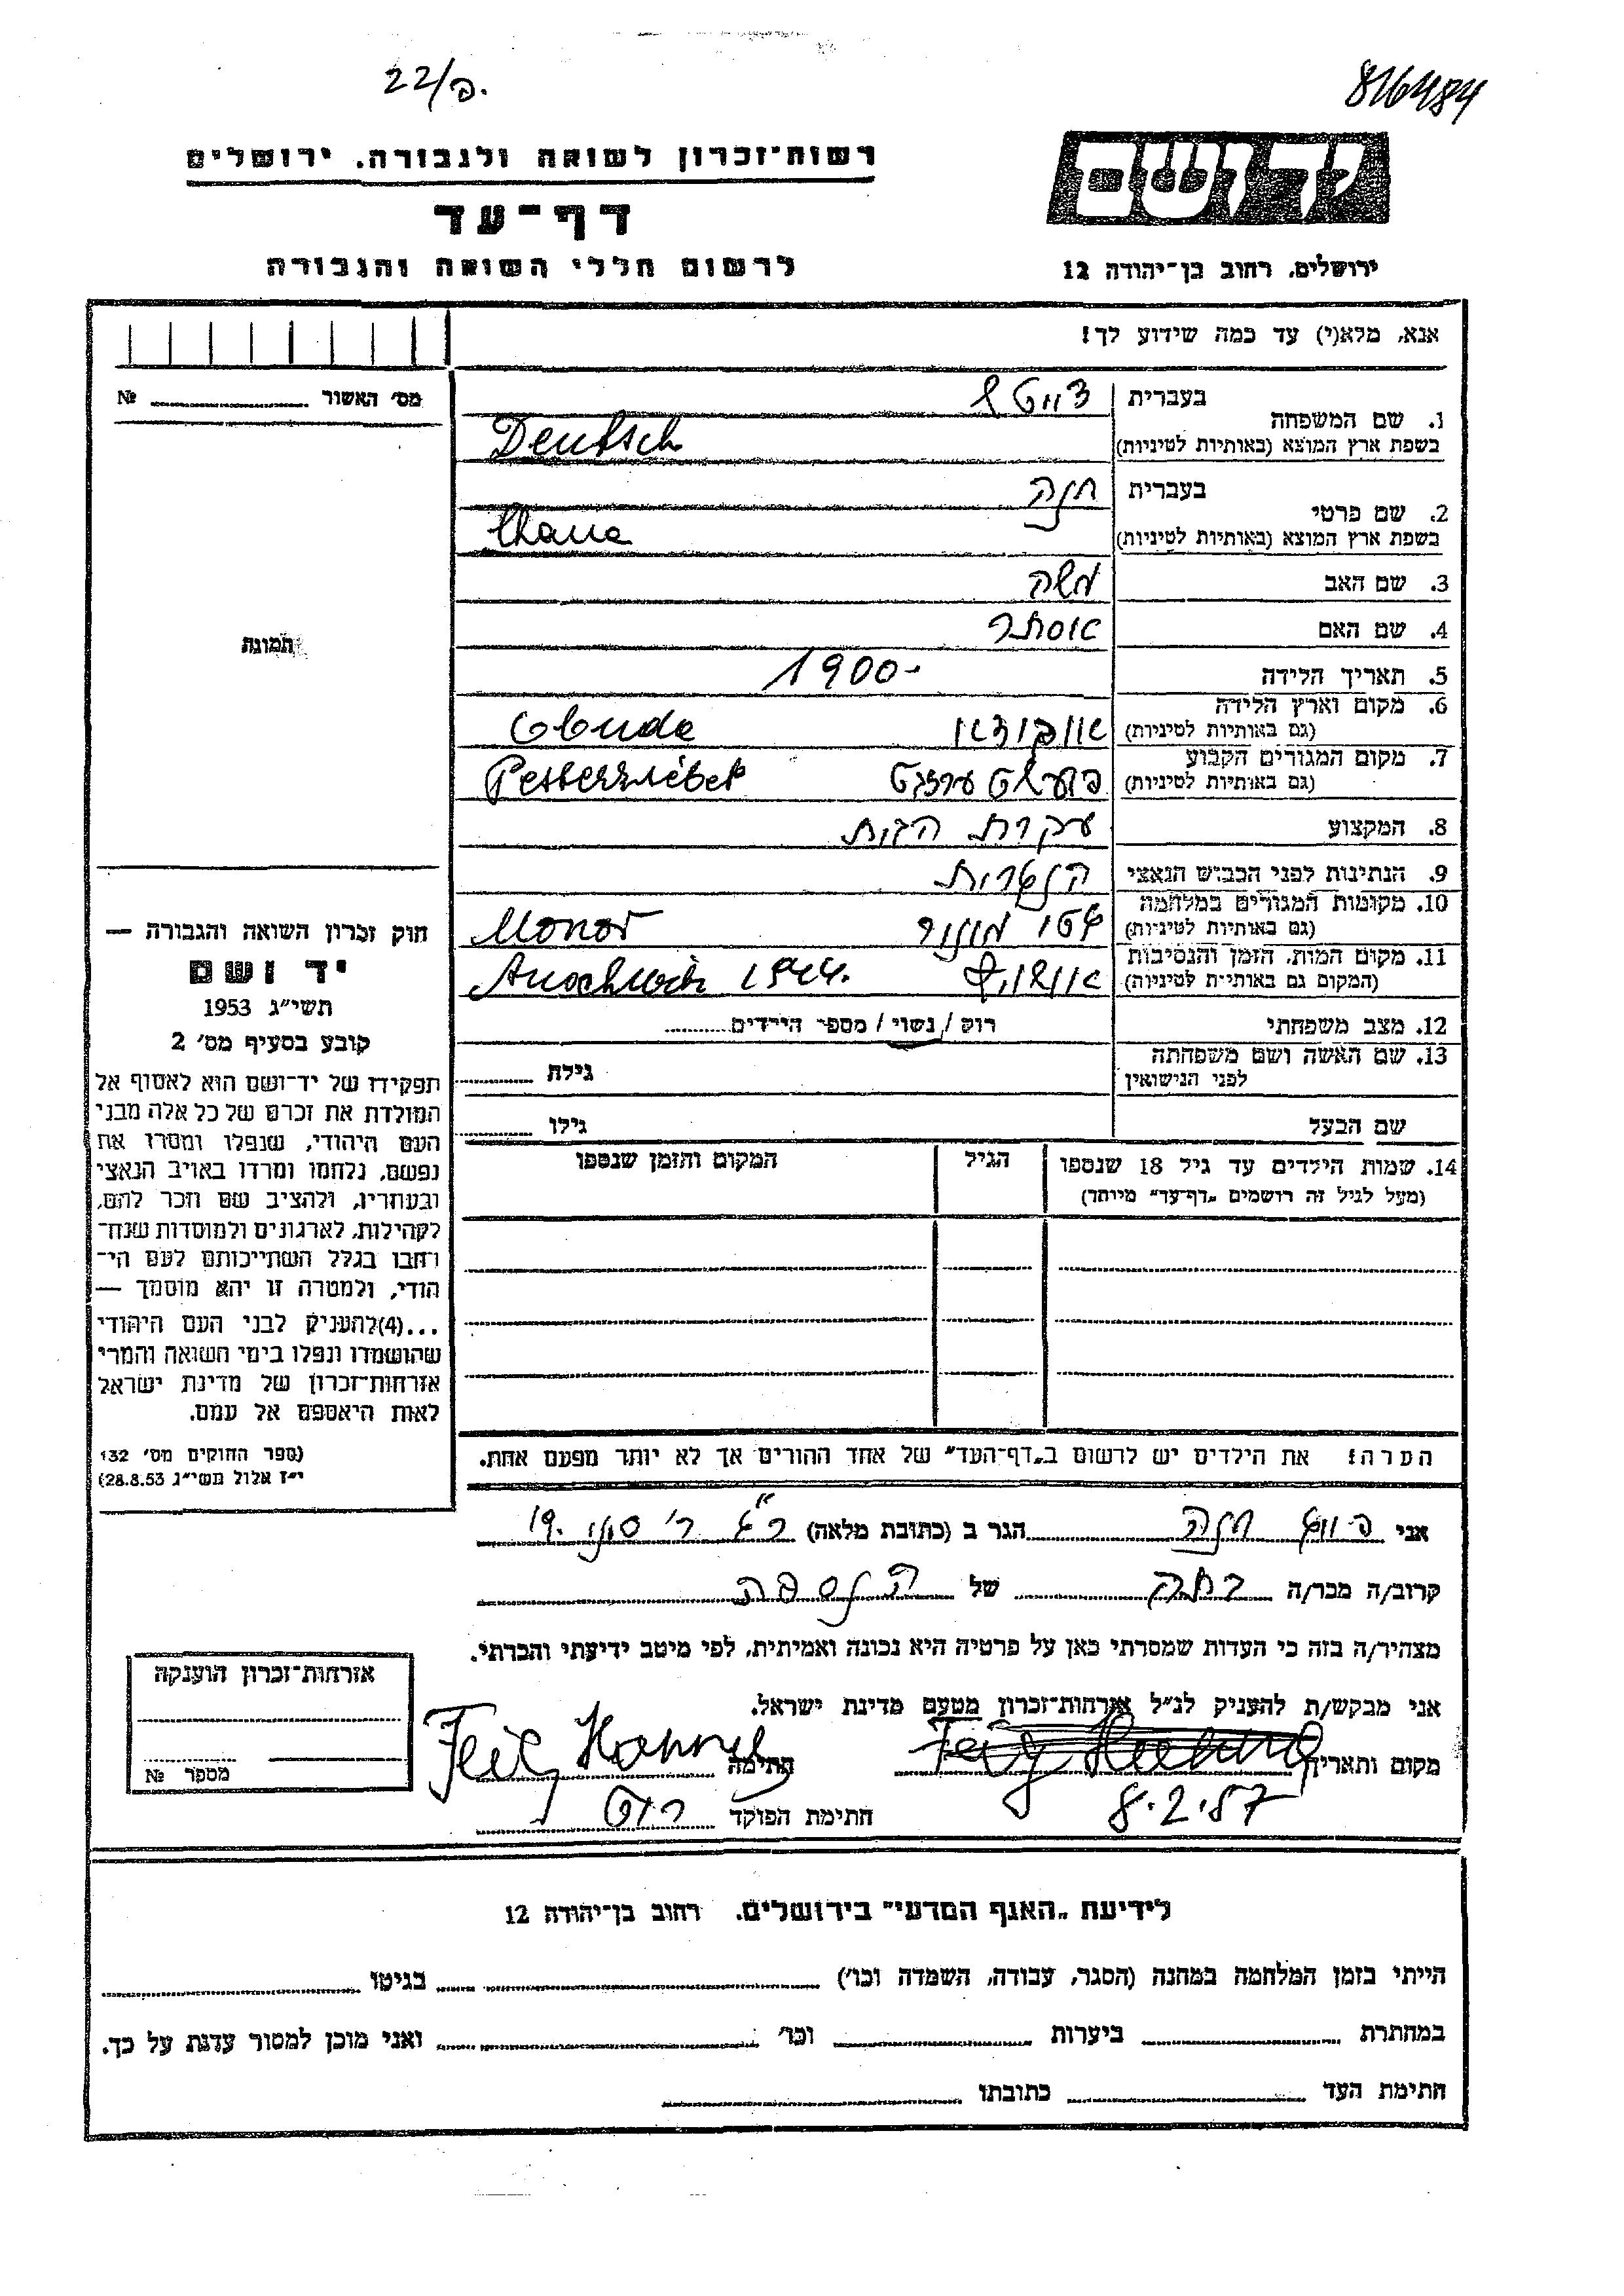 22/פ.
816484
רשות־זכרון לשואה ולגבורה. ירושלים
דף־עד
לרשום חללי השואה והגבורה
יד ושם
ירושלים, רחוב בן־יהודה 12
אנא, מלא(י) עד כמה שידוע לך!
מס׳ האשור № 
1. שם המשפחה
בעברית דויטש
בשפת ארץ המוצא (באותיות לטיניות) Deutsch
2. שם פרטי
בעברית חנה
בשפת ארץ המוצא (באותיות לטיניות) Chana
3. שם האב משה
4. שם האם אסתר
תמונה
5. תאריך הלידה 1900-
6. מקום וארץ הלידה
(גם באותיות לטיניות) Obuda
7. מקום המגורים הקבוע
(גם באותיות לטיניות) Pesterzsébet
8. המקצוע עקרת הבית
9. הנתינות לפני הכבוש הנאצי הונגרית
10. מקומות המגורים במלחמה
(גם באותיות לטיניות) גטו מונור Monor
11. מקום המות, הזמן והנסיבות
(המקום גם באותיות לטיניות) אושויץ Auschwitz 1944.
12. מצב משפחתי רוק / נשוי / מספר הילדים
13. שם האשה ושם משפחתה
לפני הנישואין גילה
שם הבעל גילו
14. שמות הילדים עד גיל 18 שנספו הגיל המקום והזמן שנספו
(מעל לגיל זה רושמים „דף־עד״ מיוחד)
הערה: את הילדים יש לרשום ב„דף־העד״ של אחד ההורים אך לא יותר מפעם אחת.
חוק זכרון השואה והגבורה —
יד ושם
תשי״ג 1953
קובע בסעיף מס׳ 2
תפקידו של יד־ושם הוא לאסוף אל
המולדת את זכרם של כל אלה מבני
העם היהודי, שנפלו ומסרו את
נפשם, נלחמו ומרדו באויב הנאצי
ובעוזריו, ולהציב שם וזכר להם,
לקהילות, לארגונים ולמוסדות שנח־
רחבו בגלל השתייכותם לעם הי־
הודי, ולמטרה זו יהא מוסמך —
...(4)להעניק לבני העם היהודי
שהושמדו ונפלו בימי השואה והמרי
אזרחות־זכרון של מדינת ישראל
לאות היאספם אל עמם.
(ספר החוקים מס׳ 132
י״ז אלול תשי״ג 28.8.53)
אני פייג חנה הגר ב (כתובת מלאה)
קרוב/ה מכר/ה של הנספה
מצהיר/ה בזה כי העדות שמסרתי כאן על פרטיה היא נכונה ואמיתית, לפי מיטב ידיעתי והכרתי.
אני מבקש/ת להעניק לנ״ל אזרחות־זכרון מטעם מדינת ישראל.
מקום ותאריך חתימה Feig Hanna
8.2.57 חתימת הפוקד
אזרחות־זכרון הוענקה
מספר №
לידיעת „האגף המדעי״ בירושלים. רחוב בן־יהודה 12
הייתי בזמן המלחמה במחנה (הסגר, עבודה, השמדה וכו׳) בגיטו
במחתרת ביערות וכו׳ ואני מוכן למסור עדות על כך.
חתימת העד כתובתו